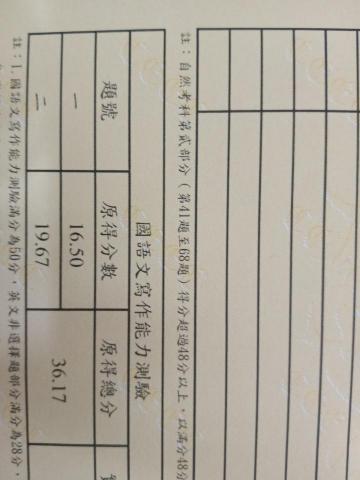 註：自然考科第貳部分（第41題至68題）得分超過48分以上，以滿分48分
國語文寫作能力測驗
題號 原得分數 原得總分
一 16.50 36.17
二 19.67
註：1.國語文寫作能力測驗滿分為50分，英文非選擇題部分滿分為28分，